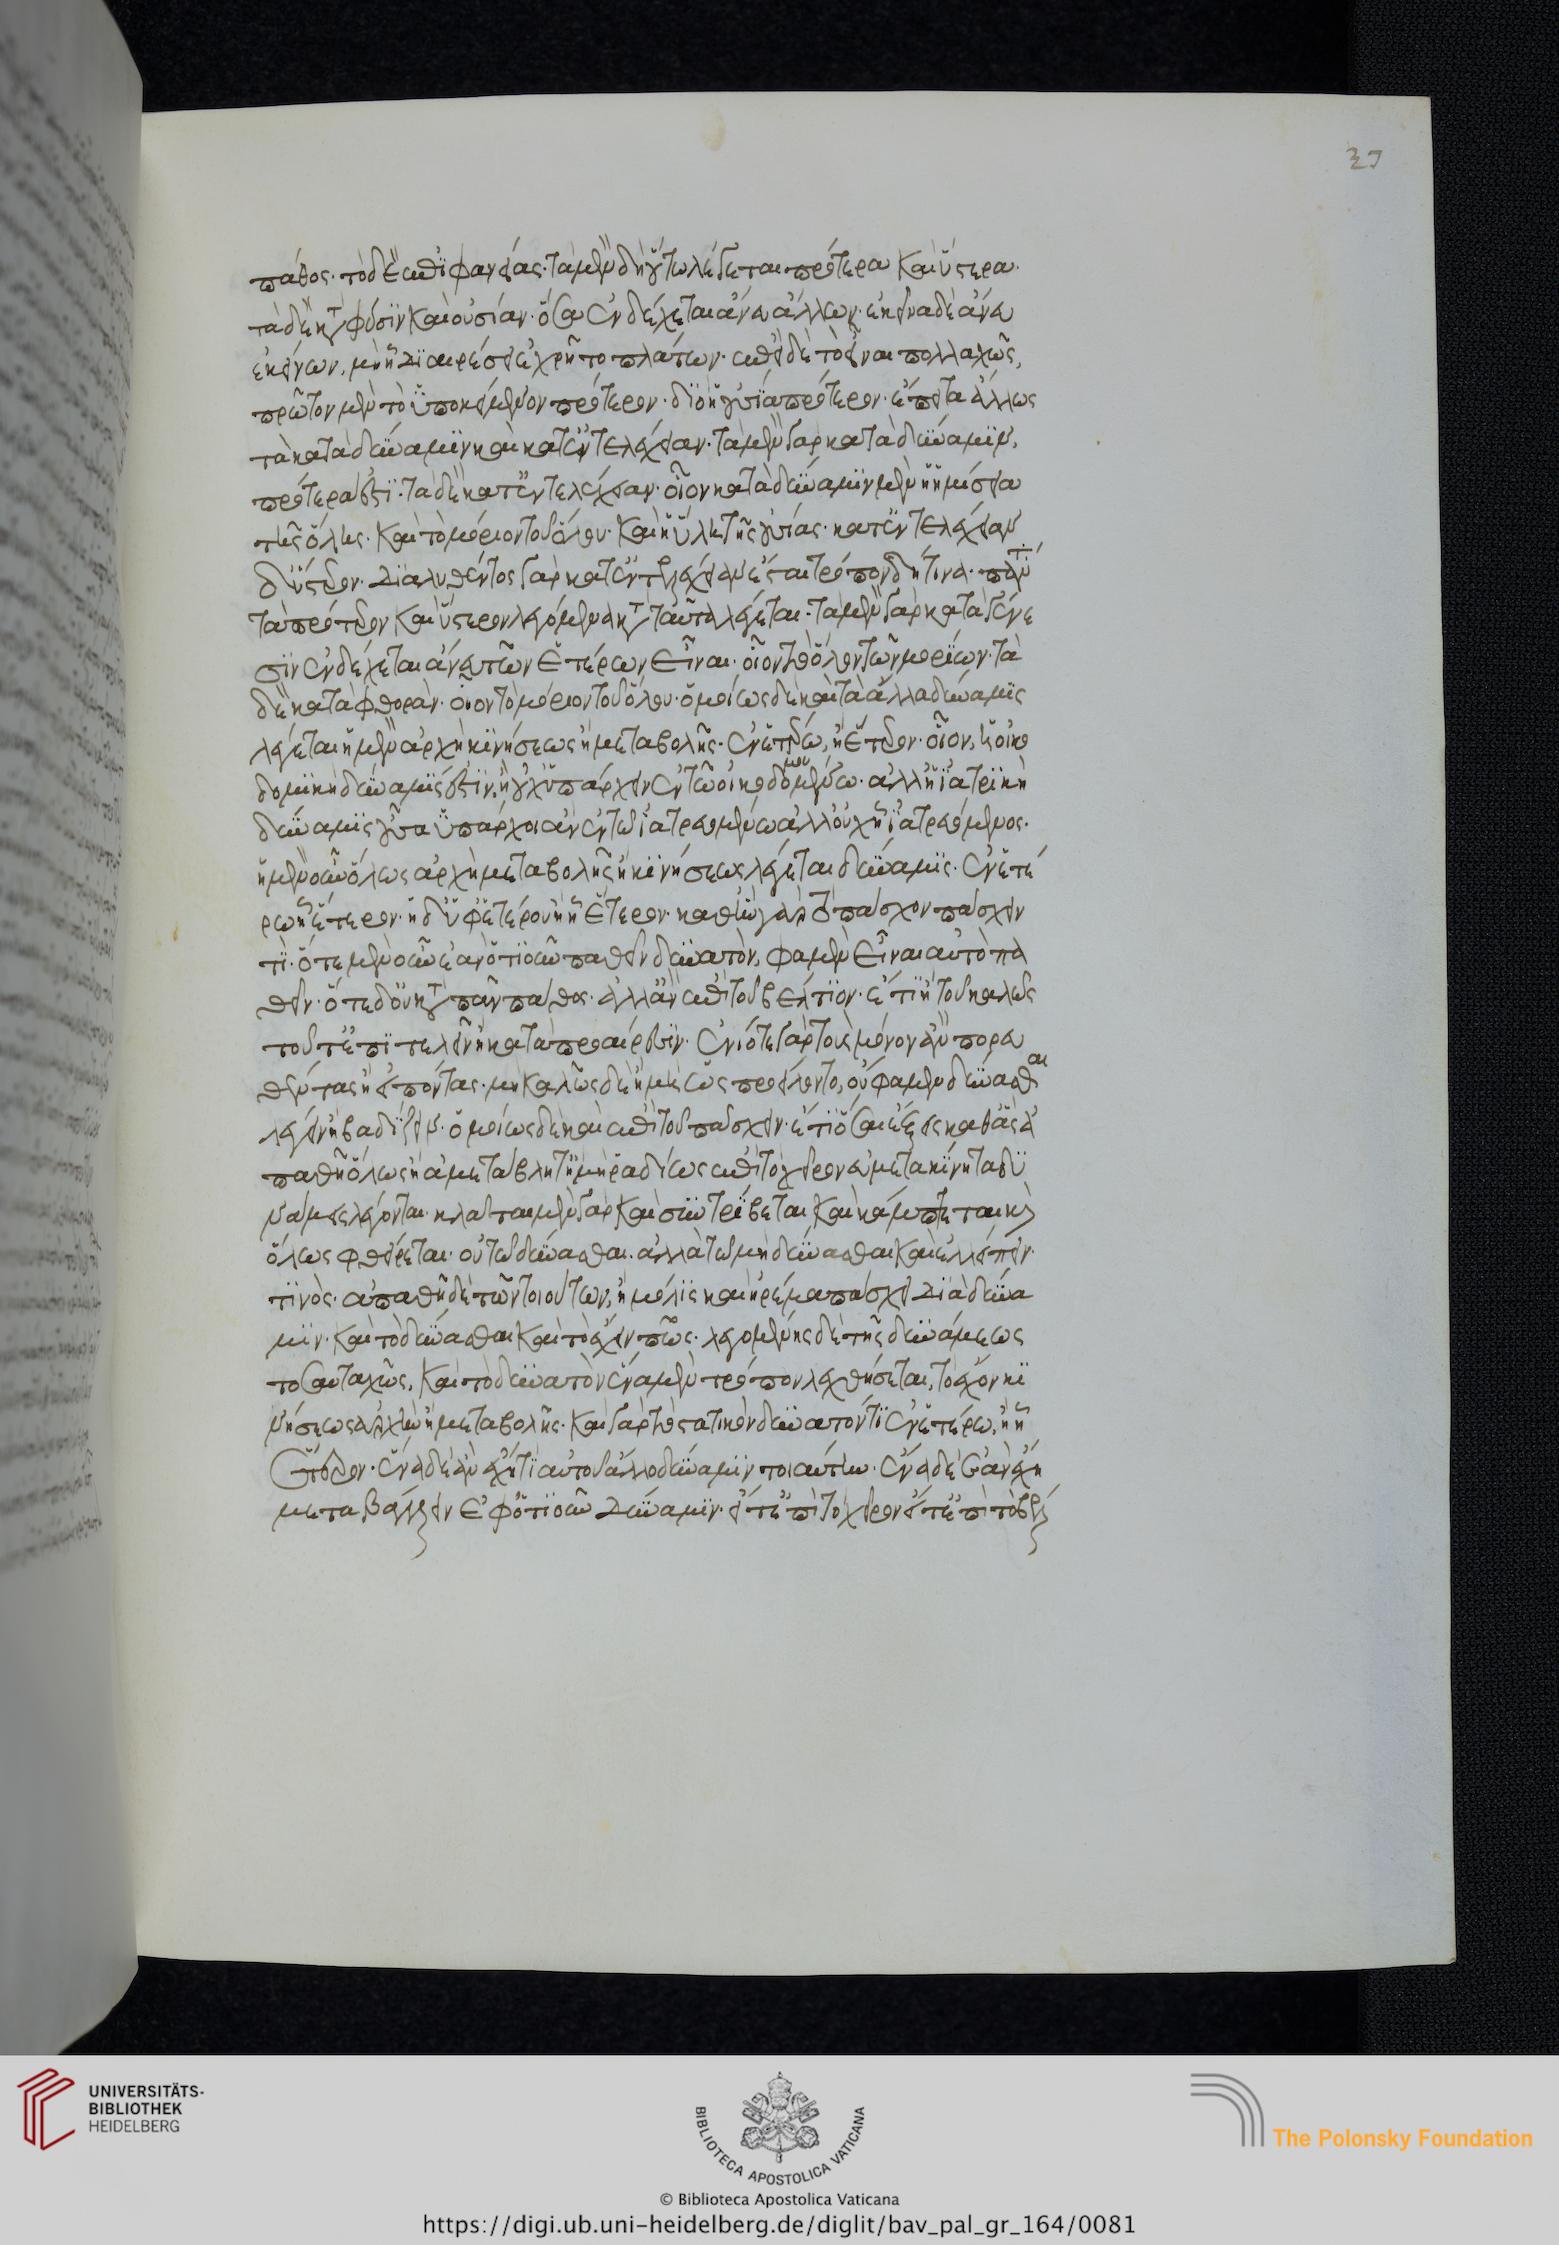 πάθος· τὸ δὲ ἐπιφανείας· τὰ μὲν δὴ οὕτω λέγεται πρότερα καὶ ὕστερα·
τὰ δὲ κατὰ φύσιν καὶ οὐσίαν· ὅσα ἐνδέχεται ἄνευ ἄλλων· ἐκεῖνα δὲ ἄνευ
ἐκείνων, μὴ ἧ διαιρέσει ἐχρῆτο πλάτων· ἐπεὶ δὲ τὸ εἶναι πολλαχῶς,
πρῶτον μὲν τὸ ὑποκείμενον πρότερον· διὸ ἡ οὐσία πρότερον· ἔπειτα ἄλλως
τὰ κατὰ δύναμιν καὶ κατ' ἐντελέχειαν· τὰ μὲν γὰρ κατὰ δύναμιν,
πρότερά ἐστι· τὰ δὲ κατ' ἐντελέχειαν· οἷον κατὰ δύναμιν μὲν ἡ ἡμίσεια
τῆς ὅλης· καὶ τὸ μόριον τοῦ ὅλου· καὶ ἡ ὕλη τῆς οὐσίας· κατ' ἐντελέχειαν
δ' ὕστερον· διαλυθέντος γὰρ κατ' ἐντελέχειαν ἔσται τρόπον δή τινα· πάντα
τὰ πρότερον καὶ ὕστερον λεγόμενα κατὰ ταῦτα λέγεται· τὰ μὲν γὰρ κατὰ γένε
σιν ἐνδέχεται ἄνευ τῶν ἑτέρων εἶναι· οἷον τὸ ὅλον τῶν μορίων· τὰ
δὲ κατὰ φθοράν· οἷον τὸ μόριον τοῦ ὅλου· ὁμοίως δὲ καὶ τὰ ἄλλα δύναμις
λέγεται ἡ μὲν ἀρχὴ κινήσεως ἢ μεταβολῆς· ἐν ἑτέρω, ἢ ἕτερον· οἷον, ἡ οἰκο
δομικὴ δύναμίς ἐστιν, ἣ οὐχ ὑπάρχει ἐν τῶ οἰκοδομουμένω· ἀλλ' ἡ ἰατρικὴ
δύναμις οὖσα ὑπάρχοι ἂν ἐν τῶ ἰατρευομένω ἀλλ' οὐχ ἧ ἰατρευόμενος·
ἡ μὲν οὖν ὅλως ἀρχὴ μεταβολῆς ἢ κινήσεως λέγεται δύναμις· ἐν ἑτέ
ρω ἢ ἧ ἕτερον· ἡ δ' ὑφ' ἑτέρου ἢ ἧ ἕτερον· καθ' ἣν γὰρ τὸ πάσχον πάσχει
τί· ὁτὲ μὲν οὖν ἐὰν ὁτιοῦν παθεῖν δύνατον, φαμὲν εἶναι αὐτὸ πα
θεῖν· ὁτὲ δ' οὐ κατὰ πᾶν πάθος· ἀλλ' ἂν ἐπὶ τοῦ βέλτιον· ἔτι ἡ τοῦ καλῶς
τοῦτ' ἐπιτελεῖν ἢ κατὰ προαίρεσιν· ἐνίοτε γὰρ τοὺς μόνον ἂν πορευ
θέντας ἢ εἰπόντας· μὴ καλῶς δὲ ἢ μὴ ὡς προείλοντο, οὔ φαμεν δύνασθαι
λέγειν ἢ βαδίζειν· ὁμοίως δὲ καὶ ἐπὶ τοῦ πάσχειν· ἔτι ὅσαι ἕξεις καθ' ἃς ἀ
παθῆ ὅλως ἢ ἀμετάβλητα ἢ μὴ ῥαδίως ἐπὶ τὸ χεῖρον εὐμετακίνητα δυ
νάμεις λέγονται· κλᾶται μὲν γὰρ καὶ συντρίβεται καὶ κάμπτεται καὶ
ὅλως φθείρεται· οὐ τῶ δύνασθαι· ἀλλὰ τῶ μὴ δύνασθαι καὶ ἐλλείπειν
τινός· ἀπαθῆ δὲ τῶν τοιούτων, ἃ μόλις καὶ ἠρέμα πάσχει διὰ δύνα
μιν· καὶ τὸ δύνασθαι καὶ τὸ ἔχειν πῶς· λεγομένης δὲ τῆς δυνάμεως
τοσαυταχῶς, καὶ τὸ δυνατὸν ἕνα μὲν τρόπον λεχθήσεται, τὸ ἔχον κι
νήσεως ἀρχὴν ἢ μεταβολῆς· καὶ γὰρ τὸ στατικὸν δυνατόν τι ἐν ἑτέρω, ἢ ἧ
ἕτερον· ἕνα δὲ ἐὰν ἔχη τι αὐτοῦ ἄλλο δύναμιν τοιαύτην· ἕνα δὲ ἐὰν ἔχη
μεταβάλλειν ἐφ' ὁτιοῦν δύναμιν· εἴτ' ἐπὶ τὸ χεῖρον εἴτ' ἐπὶ τὸ βέλ
UNIVERSITÄTS-
BIBLIOTHEK
HEIDELBERG
BIBLIOTECA APOSTOLICA VATICANA
The Polonsky Foundation
© Biblioteca Apostolica Vaticana
https://digi.ub.uni-heidelberg.de/diglit/bav_pal_gr_164/0081